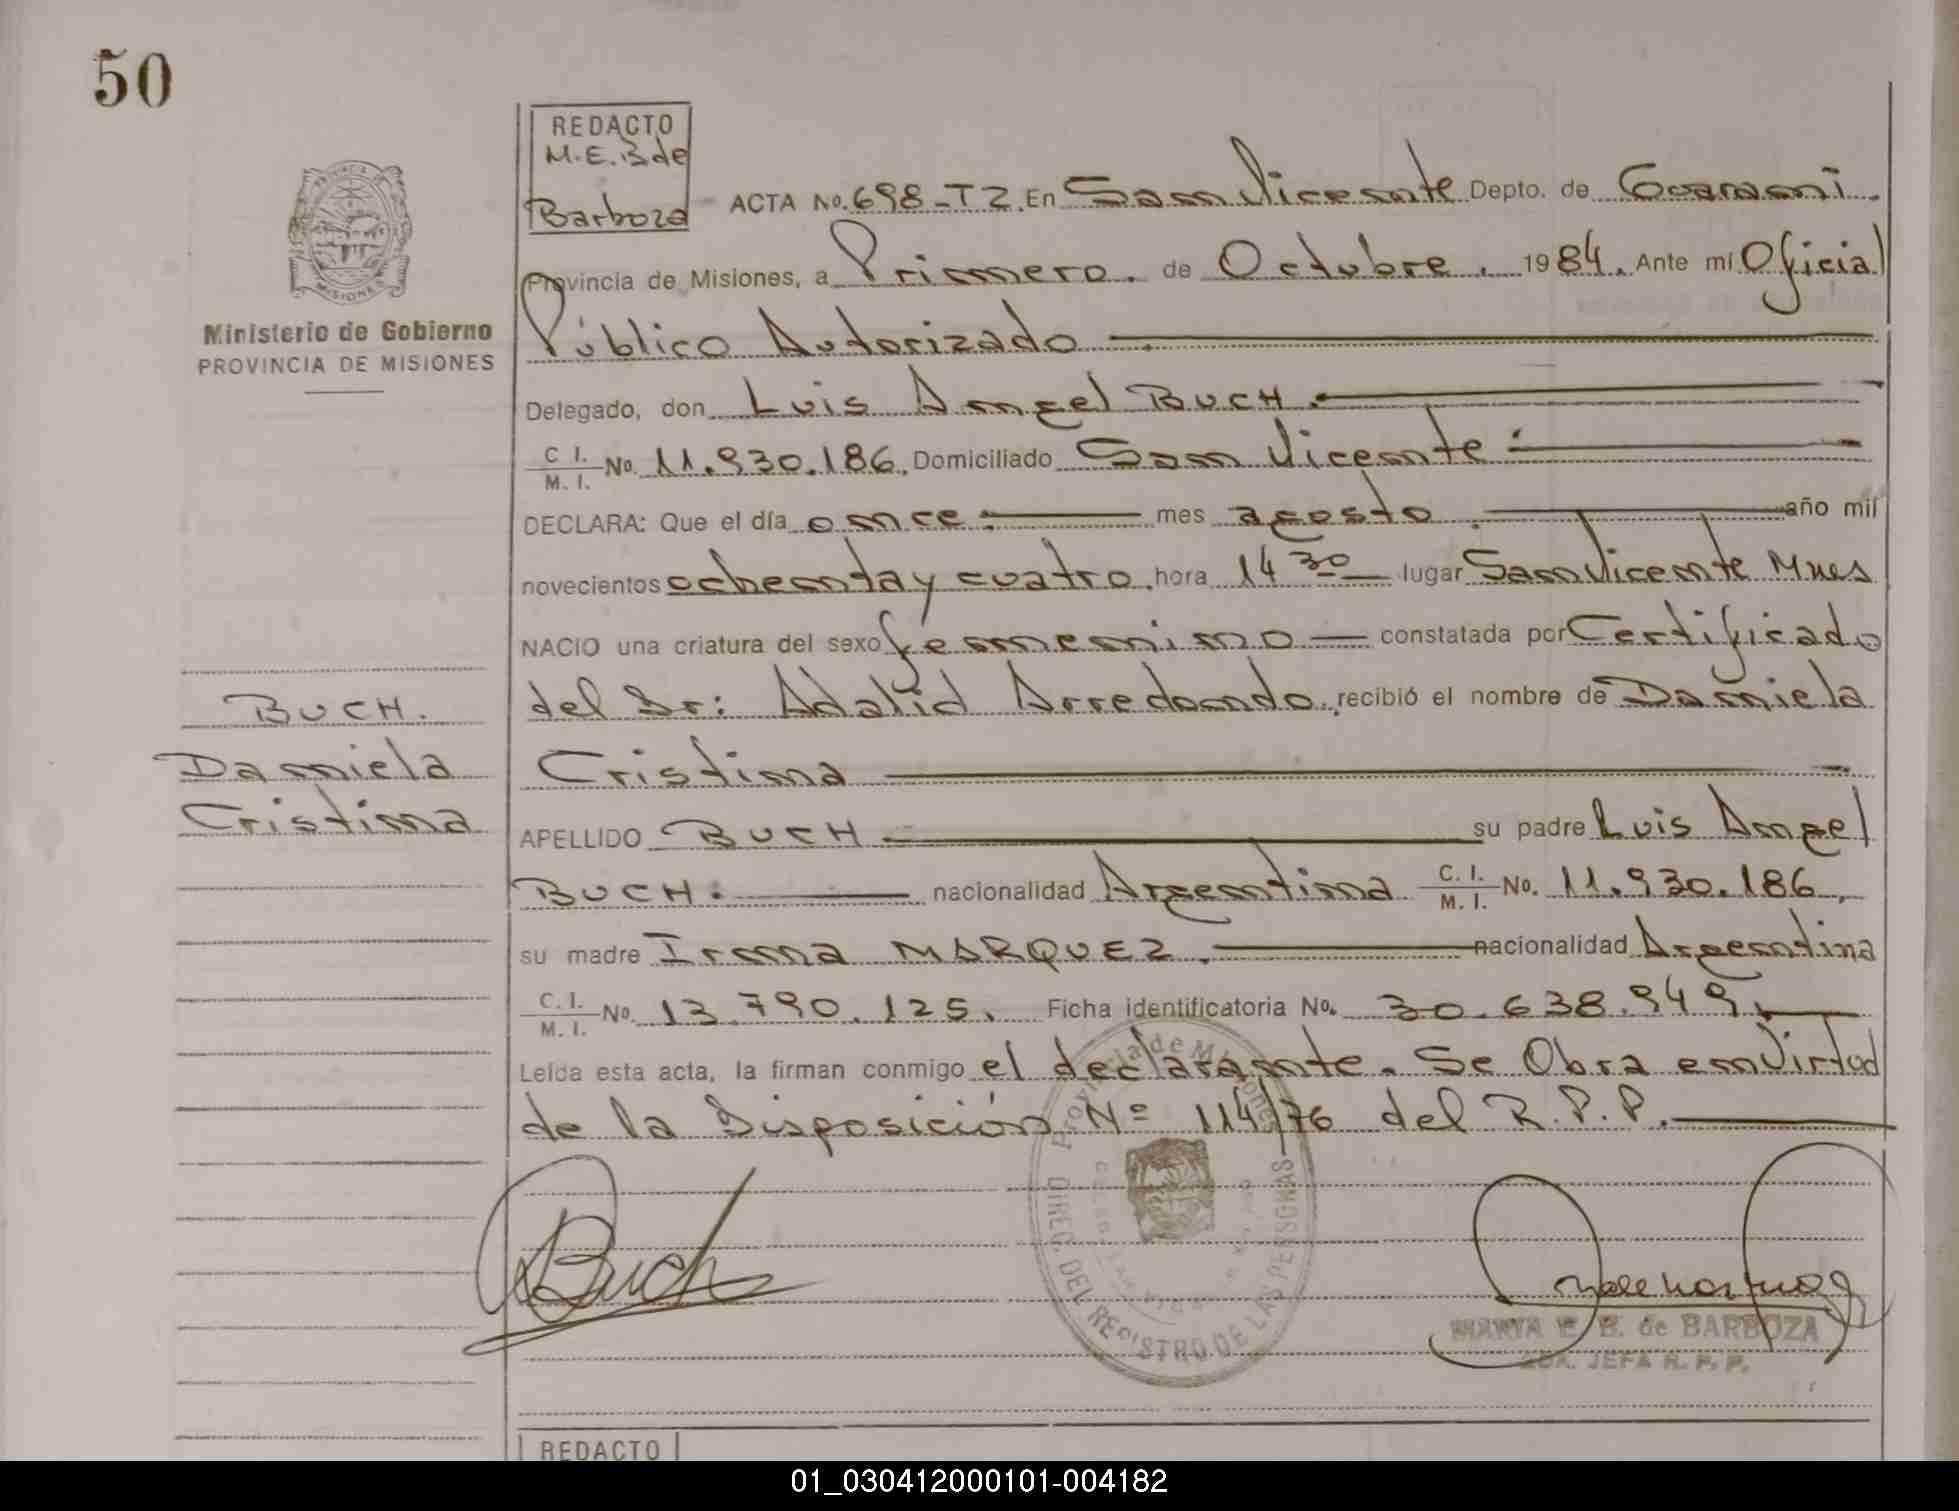 50
REDACTO
M.E.B de
Barboza
PROVINCIA DE
MISIONES
Ministerio de Gobierno
PROVINCIA DE MISIONES
ACTA No. 698-T2. En San Vicente Depto. de Guaraní.
Provincia de Misiones, a Primero. de Octubre. 1984. Ante mí Oficial
Público Autorizado
Delegado, don Luis Angel BUCH.
C I. M. I. No. 11.930.186. Domiciliado San Vicente.
DECLARA: Que el día once. mes agosto. año mil
novecientos ochenta y cuatro. hora 14 30 lugar San Vicente Mnes
NACIO una criatura del sexo femenino constatada por Certificado
del Dr: Adalid Arredondo. recibió el nombre de Daniela
Cristina
BUCH.
Daniela
Cristina
APELLIDO BUCH su padre Luis Angel
BUCH. nacionalidad Argentina C. I. M. I. No. 11.930.186.
su madre Irma MARQUEZ. nacionalidad Argentina
C. I. M. I. No. 13.790.125. Ficha identificatoria No. 30.638.949.
Leída esta acta, la firman conmigo el declarante. Se Obra en Virtud
de la Disposición Nº 114/76 del R.P.P.
Provincia de Misiones
DIREC. DEL REGISTRO DE LAS PERSONAS
Buch
MARIA E. B. de BARBOZA
JEFA R. P. P.
REDACTO
01_030412000101-004182